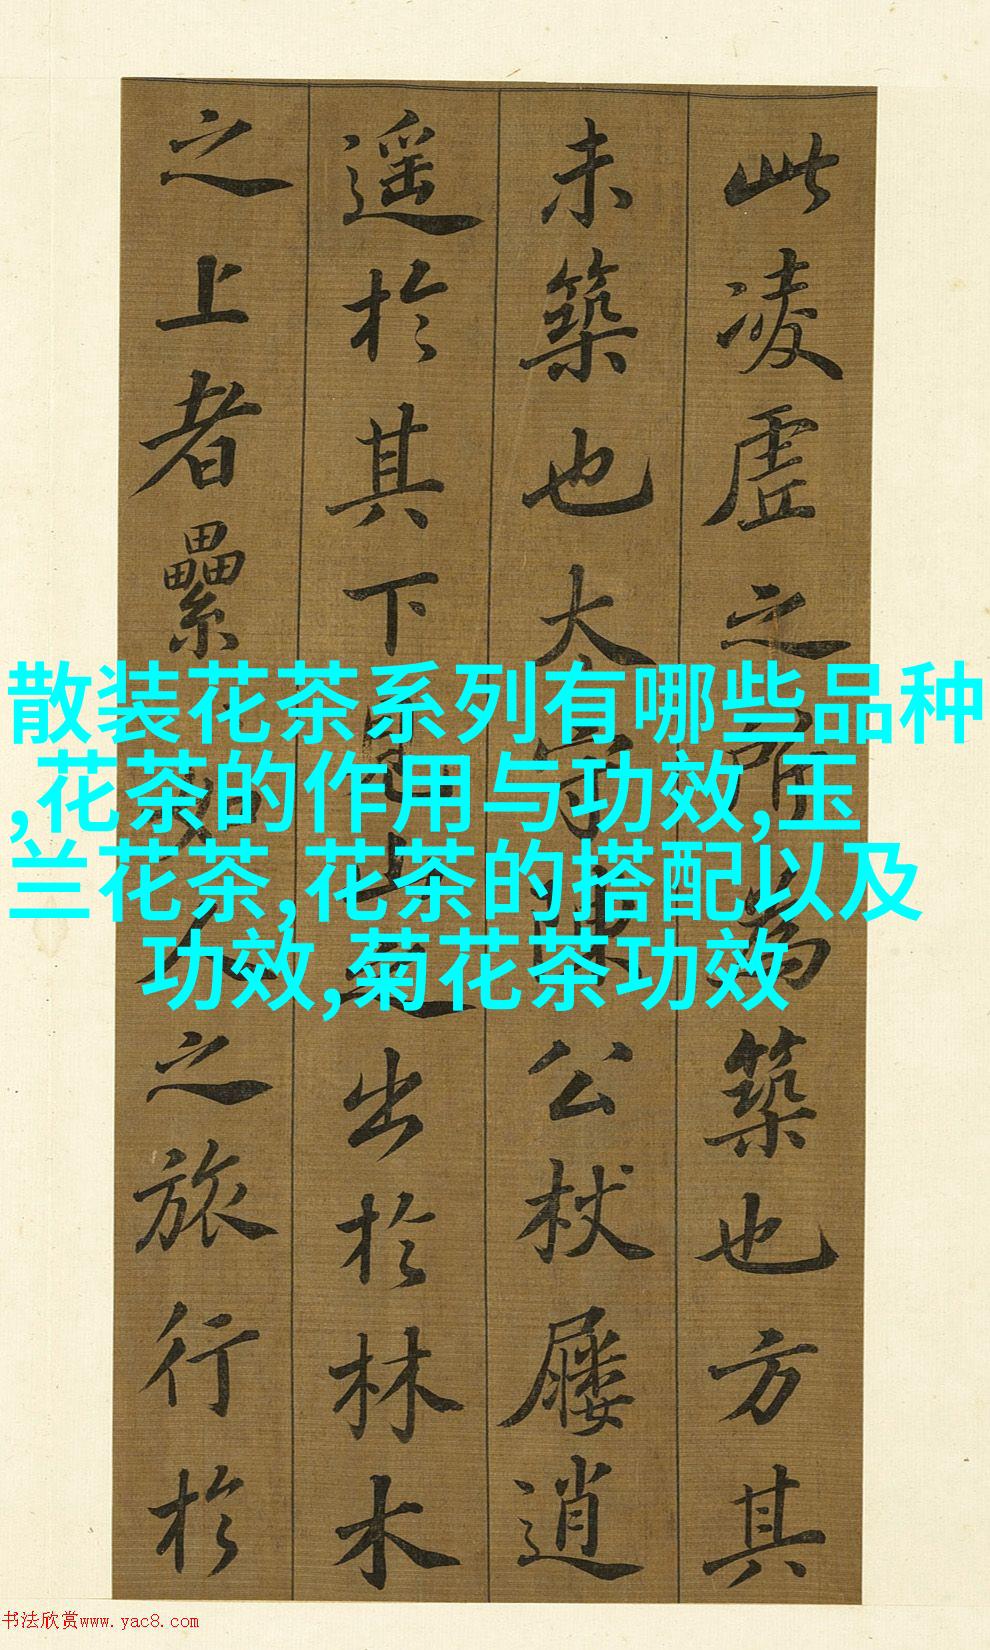 此凌虚之所為築也方其
未築也太守陳公杖屨逍
遥於其下見山之出於林木
之上者纍纍如人之旅行於
散装花茶系列有哪些品种
,花茶的作用与功效,玉
兰花茶,花茶的搭配以及
功效,菊花茶功效
书法欣赏www.yac8.com